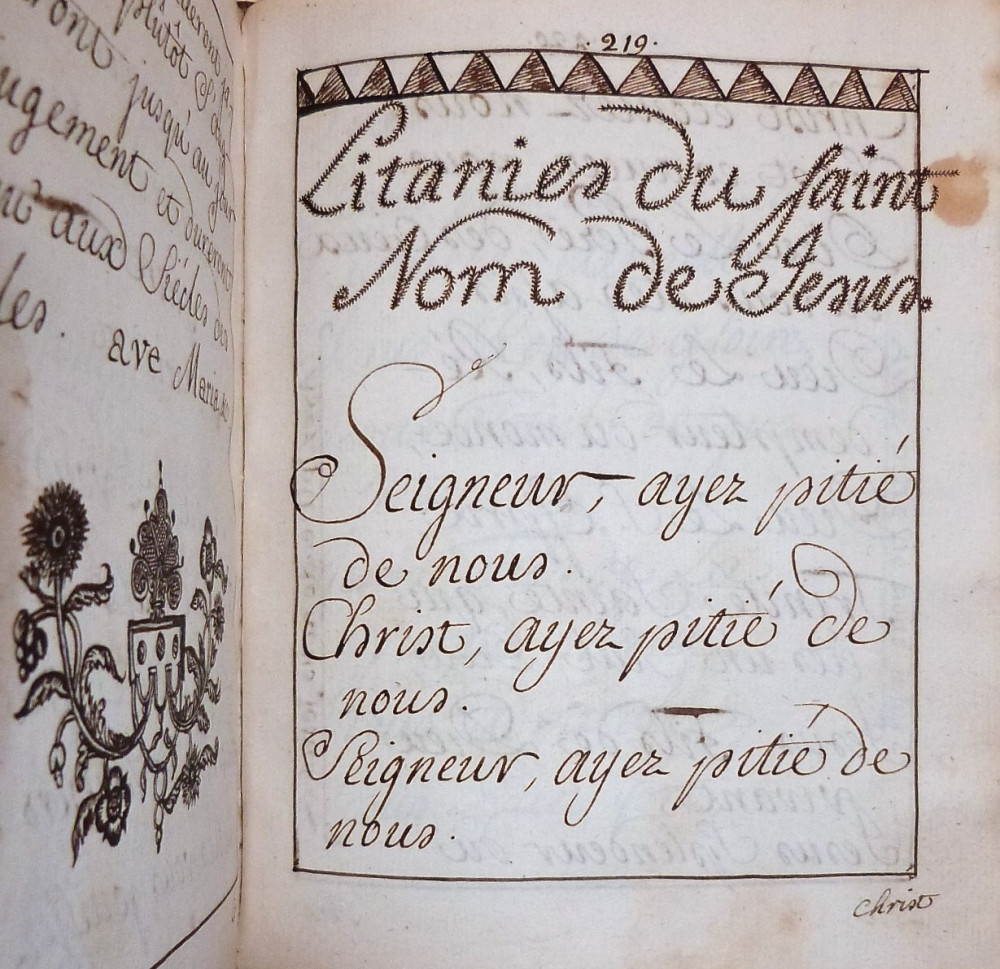 plutôt
jusqu'au jour
ugement et dureront
aux Siécles des
les.
ave Maria
·219·
Litanies du saint
Nom de Jesus.
Seigneur, ayez pitié
de nous.
Christ, ayez pitié de
nous.
Seigneur, ayez pitié de
nous.
christ